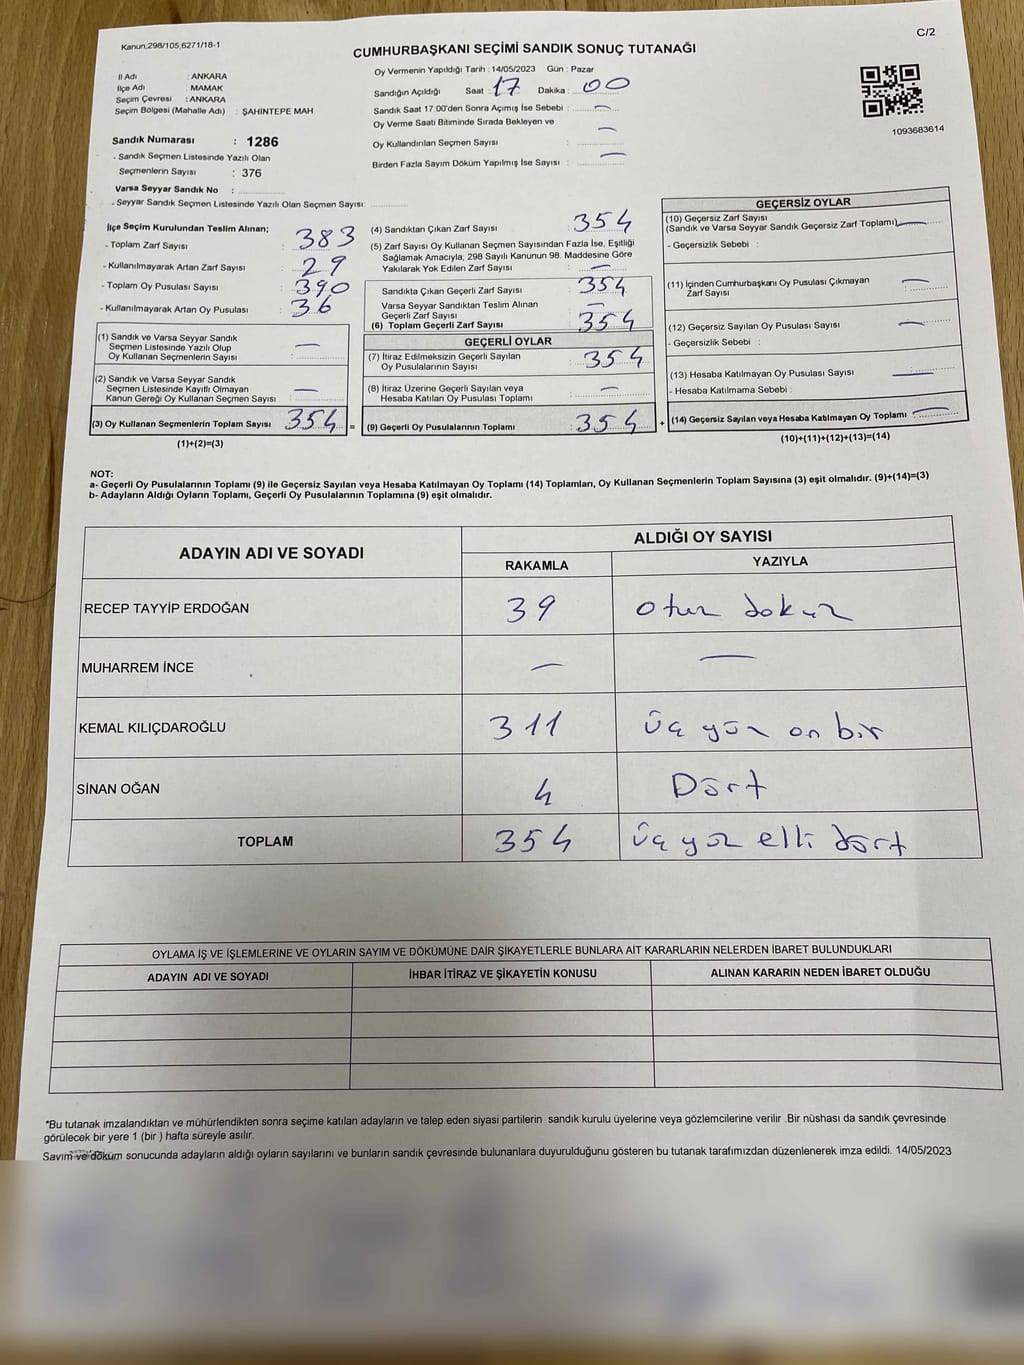 Kanun:298/105,6271/18-1
C/2
CUMHURBAŞKANI SEÇİMİ SANDIK SONUÇ TUTANAĞI
İl Adı : ANKARA
İlçe Adı : MAMAK
Seçim Çevresi : ANKARA
Seçim Bölgesi (Mahalle Adı) : ŞAHINTEPE MAH
Sandık Numarası : 1286
- Sandık Seçmen Listesinde Yazılı Olan
Seçmenlerin Sayısı : 376
Varsa Seyyar Sandık No :
- Seyyar Sandık Seçmen Listesinde Yazılı Olan Seçmen Sayısı:
Oy Vermenin Yapıldığı Tarih : 14/05/2023 Gün : Pazar
Sandığın Açıldığı Saat : 17 Dakika : 00
Sandık Saat 17:00'den Sonra Açımış İse Sebebi : —
Oy Verme Saati Bitiminde Sırada Bekleyen ve
Oy Kullandırılan Seçmen Sayısı : —
Birden Fazla Sayım Döküm Yapılmış İse Sayısı : —
1093683614
İlçe Seçim Kurulundan Teslim Alınan;
- Toplam Zarf Sayısı : 383
- Kullanılmayarak Artan Zarf Sayısı : 29
- Toplam Oy Pusulası Sayısı : 390
- Kullanılmayarak Artan Oy Pusulası : 36
(1) Sandık ve Varsa Seyyar Sandık
Seçmen Listesinde Yazılı Olup
Oy Kullanan Seçmenlerin Sayısı : —
(2) Sandık ve Varsa Seyyar Sandık
Seçmen Listesinde Kayıtlı Olmayan
Kanun Gereği Oy Kullanan Seçmen Sayısı : —
(3) Oy Kullanan Seçmenlerin Toplam Sayısı : 354 =
(1)+(2)=(3)
(4) Sandıktan Çıkan Zarf Sayısı : 354
(5) Zarf Sayısı Oy Kullanan Seçmen Sayısından Fazla İse, Eşitliği
Sağlamak Amacıyla, 298 Sayılı Kanunun 98. Maddesine Göre
Yakılarak Yok Edilen Zarf Sayısı : —
Sandıkta Çıkan Geçerli Zarf Sayısı : 354
Varsa Seyyar Sandıktan Teslim Alınan
Geçerli Zarf Sayısı : —
(6) Toplam Geçerli Zarf Sayısı : 354
GEÇERLİ OYLAR
(7) İtiraz Edilmeksizin Geçerli Sayılan
Oy Pusulalarının Sayısı : 354
(8) İtiraz Üzerine Geçerli Sayılan veya
Hesaba Katılan Oy Pusulaları Toplamı : —
(9) Geçerli Oy Pusulalarının Toplamı : 354 +
GEÇERSİZ OYLAR
(10) Geçersiz Zarf Sayısı
(Sandık ve Varsa Seyyar Sandık Geçersiz Zarf Toplamı) : —
- Geçersizlik Sebebi :
(11) İçinden Cumhurbaşkanı Oy Pusulası Çıkmayan
Zarf Sayısı : —
(12) Geçersiz Sayılan Oy Pusulası Sayısı : —
- Geçersizlik Sebebi :
(13) Hesaba Katılmayan Oy Pusulası Sayısı : —
- Hesaba Katılmama Sebebi :
(14) Geçersiz Sayılan veya Hesaba Katılmayan Oy Toplamı : —
(10)+(11)+(12)+(13)=(14)
NOT:
a- Geçerli Oy Pusulalarının Toplamı (9) ile Geçersiz Sayılan veya Hesaba Katılmayan Oy Toplamı (14) Toplamları, Oy Kullanan Seçmenlerin Toplam Sayısına (3) eşit olmalıdır. (9)+(14)=(3)
b- Adayların Aldığı Oyların Toplamı, Geçerli Oy Pusulalarının Toplamına (9) eşit olmalıdır.
ADAYIN ADI VE SOYADI ALDIĞI OY SAYISI
RAKAMLA YAZIYLA
RECEP TAYYİP ERDOĞAN 39 otuz dokuz
MUHARREM İNCE — —
KEMAL KILIÇDAROĞLU 311 üç yüz on bir
SİNAN OĞAN 4 Dört
TOPLAM 354 üç yüz elli dört
OYLAMA İŞ VE İŞLEMLERİNE VE OYLARIN SAYIM VE DÖKÜMÜNE DAİR ŞİKAYETLERLE BUNLARA AİT KARARLARIN NELERDEN İBARET BULUNDUKLARI
ADAYIN ADI VE SOYADI İHBAR İTİRAZ VE ŞİKAYETİN KONUSU ALINAN KARARIN NEDEN İBARET OLDUĞU
*Bu tutanak imzalandıktan ve mühürlendikten sonra seçime katılan adayların ve talep eden siyasi partilerin sandık kurulu üyelerine veya gözlemcilerine verilir .Bir nüshası da sandık çevresinde
görülecek bir yere 1 (bir ) hafta süreyle asılır.
Sayım ve döküm sonucunda adayların aldığı oyların sayılarını ve bunların sandık çevresinde bulunanlara duyurulduğunu gösteren bu tutanak tarafımızdan düzenlenerek imza edildi. 14/05/2023